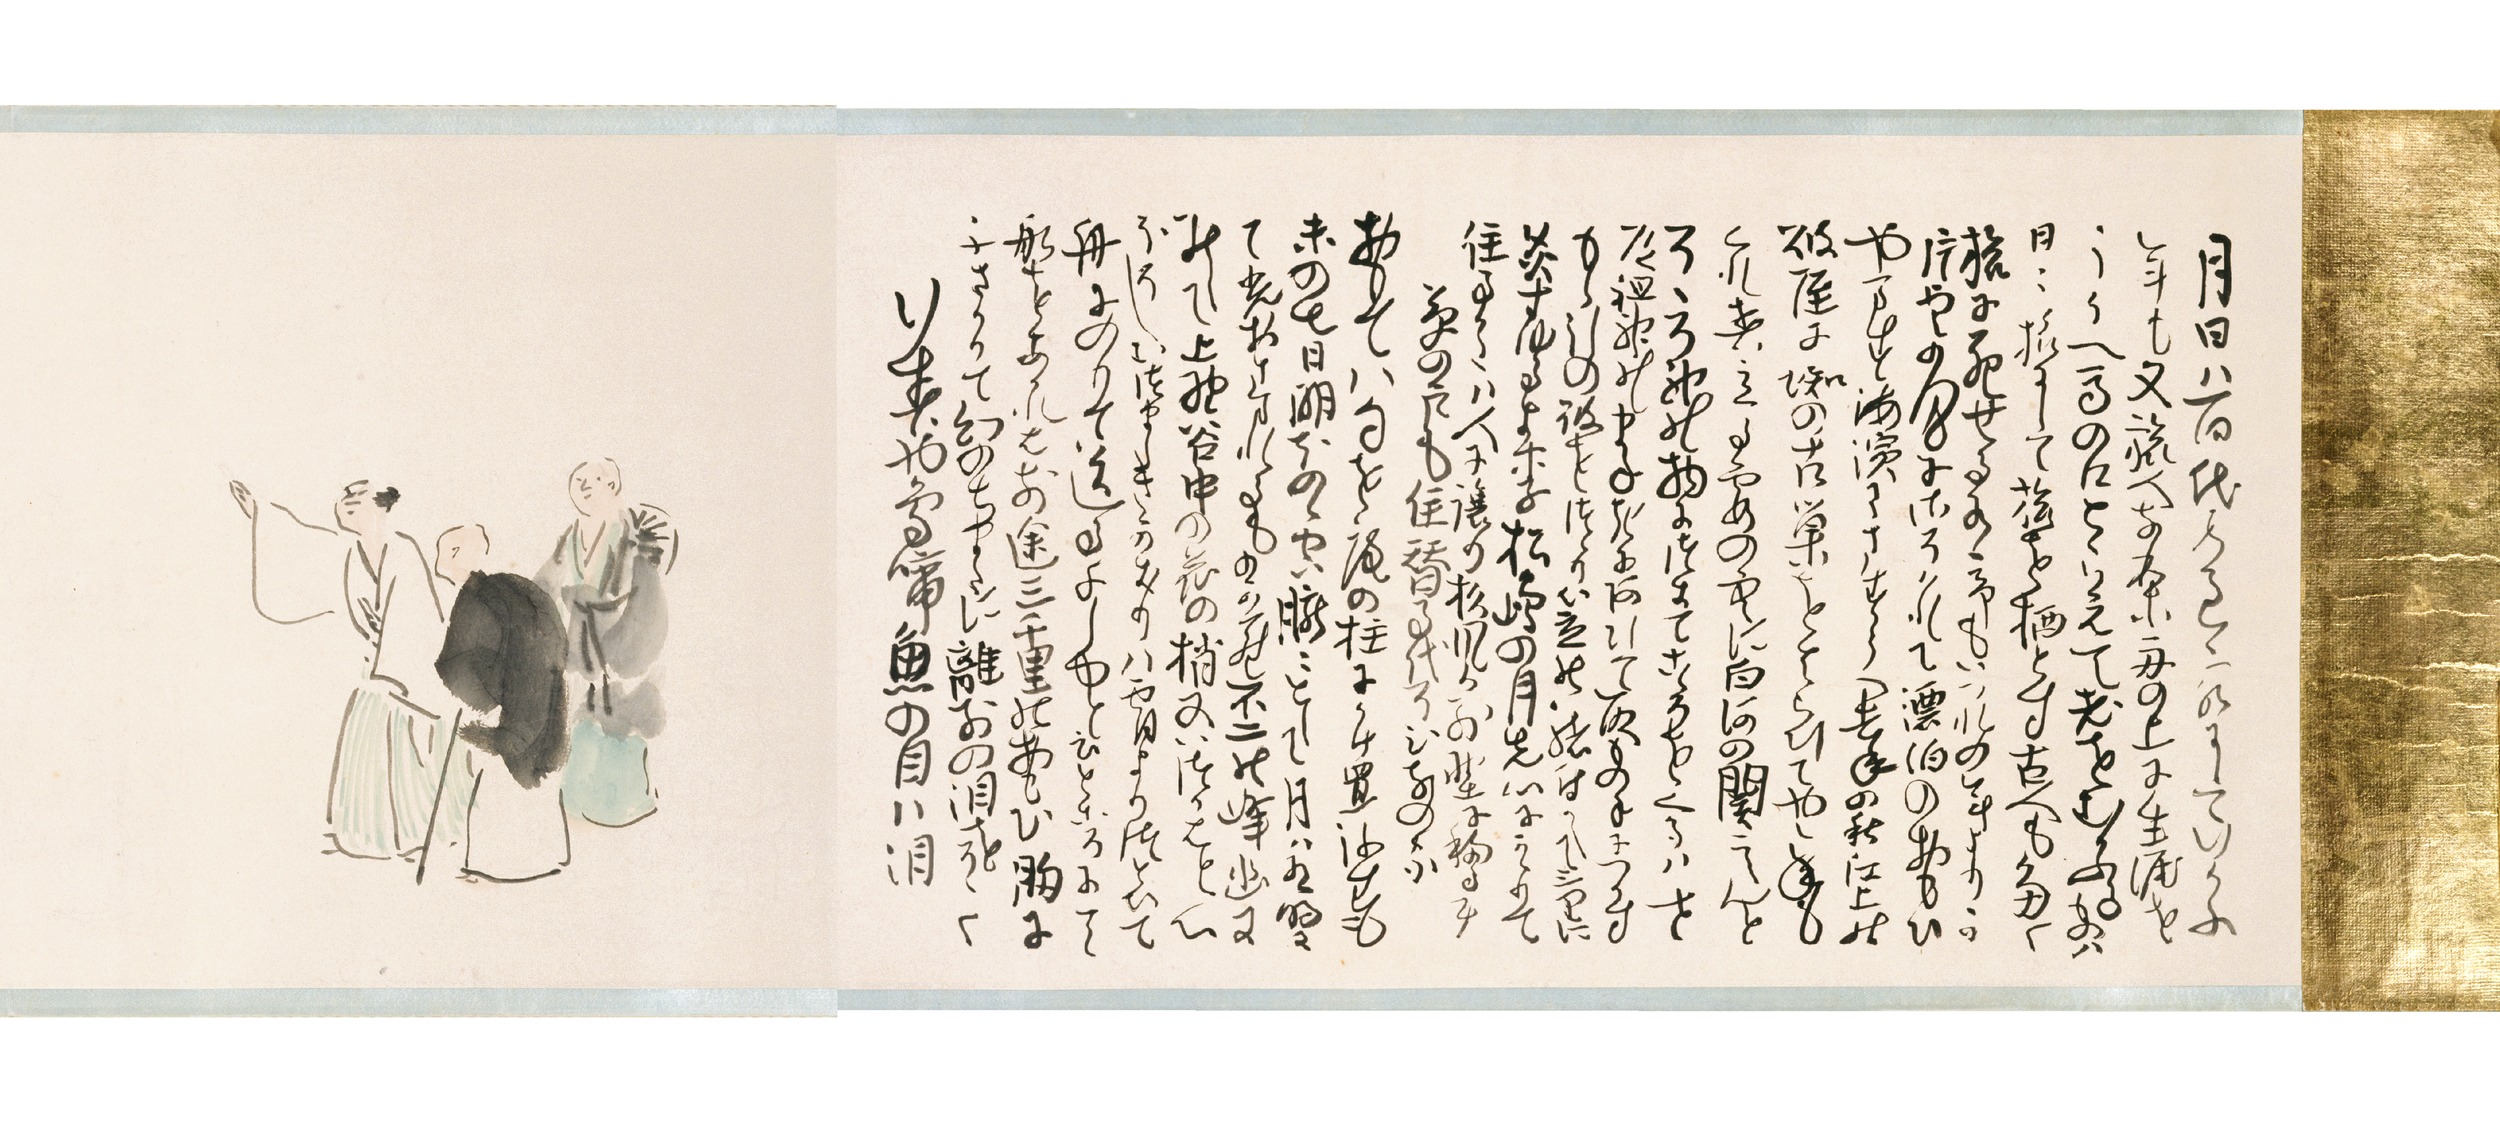 月日ハ百代の過客にして行かふ
年も又旅人なり舟の上に生涯を
うかへ馬の口とらえて老をむかふる物ハ
日々旅にして旅を栖とす古人も多く
旅に死せるあり予もいつれの年よりか
片雲の風にさそはれて漂泊の思ひ
やます海濱にさすらへ去年の秋江上の
破屋に蜘の古巣をはらひてやゝ年も
くれ春立る霞の空に白河の関こえんと
そゝろ神の物につきてこゝろをくるハせ
道祖神のまねきにあひて取もの手につかす
もゝ引の破をつゝり笠の緒付かえて三里に
灸すゆるより松嶋の月先心にかゝりて
住る方ハ人に譲り杉風か別墅に移るに
草の戸も住替る代そひなの家
面八句を庵の柱にかけ置弥生も
末の七日明ほのゝ空朧々として月ハ有明に
て光おさまれるものから不二の峰幽に
みえて上野谷中の花の梢又いつかはと心
ほそしむつましきかきりハ宵よりつとひて
舟にのりて送る千しゆと云ところにて
船をあかれは前途三千里の思ひ胸に
ふさかりて幻のちまたに離別の泪をそゝく
行春や鳥啼魚の目ハ泪